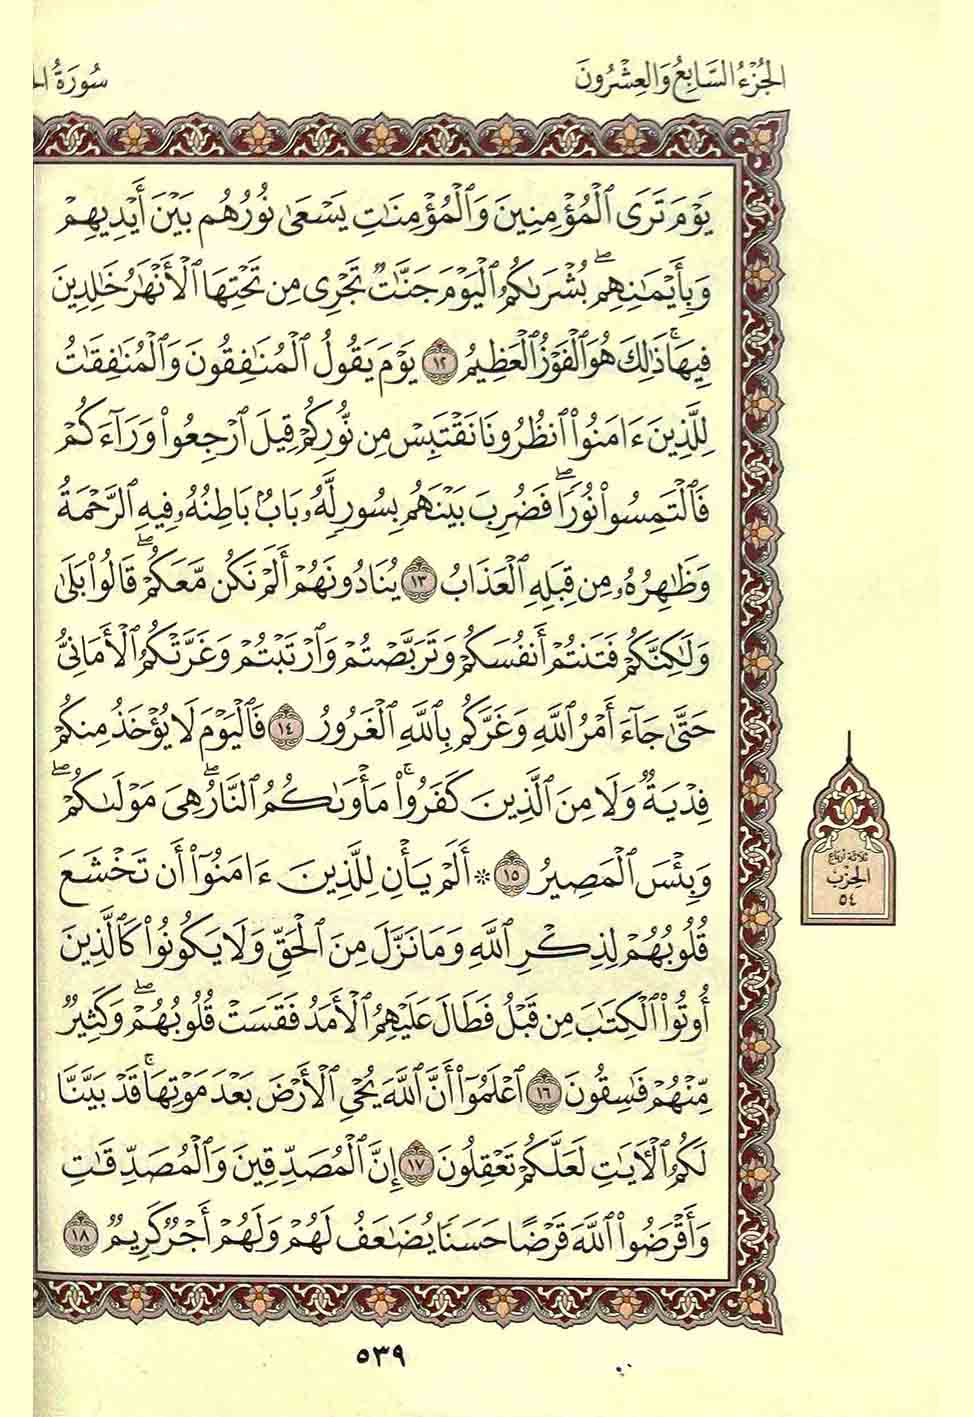 الجُزْءُ السَّابِعُ وَالعِشْرُونَ
سُورَةُ
يَوْمَ تَرَى ٱلْمُؤْمِنِينَ وَٱلْمُؤْمِنَٰتِ يَسْعَىٰ نُورُهُم بَيْنَ أَيْدِيهِمْ
وَبِأَيْمَٰنِهِمۖ بُشْرَىٰكُمُ ٱلْيَوْمَ جَنَّٰتٌ تَجْرِى مِن تَحْتِهَا ٱلْأَنْهَٰرُ خَٰلِدِينَ
فِيهَاۚ ذَٰلِكَ هُوَ ٱلْفَوْزُ ٱلْعَظِيمُ ١٢ يَوْمَ يَقُولُ ٱلْمُنَٰفِقُونَ وَٱلْمُنَٰفِقَٰتُ
لِلَّذِينَ ءَامَنُوا۟ ٱنظُرُونَا نَقْتَبِسْ مِن نُّورِكُمْ قِيلَ ٱرْجِعُوا۟ وَرَآءَكُمْ
فَٱلْتَمِسُوا۟ نُورًاۖ فَضُرِبَ بَيْنَهُم بِسُورٍ لَّهُۥ بَابٌۢ بَاطِنُهُۥ فِيهِ ٱلرَّحْمَةُ
وَظَٰهِرُهُۥ مِن قِبَلِهِ ٱلْعَذَابُ ١٣ يُنَادُونَهُمْ أَلَمْ نَكُن مَّعَكُمْۖ قَالُوا۟ بَلَىٰ
وَلَٰكِنَّكُمْ فَتَنتُمْ أَنفُسَكُمْ وَتَرَبَّصْتُمْ وَٱرْتَبْتُمْ وَغَرَّتْكُمُ ٱلْأَمَانِىُّ
حَتَّىٰ جَآءَ أَمْرُ ٱللَّهِ وَغَرَّكُم بِٱللَّهِ ٱلْغَرُورُ ١٤ فَٱلْيَوْمَ لَا يُؤْخَذُ مِنكُمْ
فِدْيَةٌ وَلَا مِنَ ٱلَّذِينَ كَفَرُوا۟ۚ مَأْوَىٰكُمُ ٱلنَّارُۖ هِىَ مَوْلَىٰكُمْۖ
وَبِئْسَ ٱلْمَصِيرُ ١٥ * أَلَمْ يَأْنِ لِلَّذِينَ ءَامَنُوٓا۟ أَن تَخْشَعَ
قُلُوبُهُمْ لِذِكْرِ ٱللَّهِ وَمَا نَزَلَ مِنَ ٱلْحَقِّ وَلَا يَكُونُوا۟ كَٱلَّذِينَ
أُوتُوا۟ ٱلْكِتَٰبَ مِن قَبْلُ فَطَالَ عَلَيْهِمُ ٱلْأَمَدُ فَقَسَتْ قُلُوبُهُمْۖ وَكَثِيرٌ
مِّنْهُمْ فَٰسِقُونَ ١٦ ٱعْلَمُوٓا۟ أَنَّ ٱللَّهَ يُحْىِ ٱلْأَرْضَ بَعْدَ مَوْتِهَاۚ قَدْ بَيَّنَّا
لَكُمُ ٱلْءَايَٰتِ لَعَلَّكُمْ تَعْقِلُونَ ١٧ إِنَّ ٱلْمُصَّدِّقِينَ وَٱلْمُصَّدِّقَٰتِ
وَأَقْرَضُوا۟ ٱللَّهَ قَرْضًا حَسَنًا يُضَٰعَفُ لَهُمْ وَلَهُمْ أَجْرٌ كَرِيمٌ ١٨
ثلاثة أرباع
الحزب
٥٤
٥٣٩